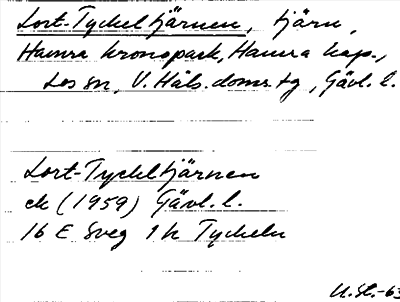 Lort-Tyckeltjärnen, tjärn,
Hamra kronopark, Hamra kap.,
Los sn, V. Häls. doms.tg, Gävl. l.
Lort-Tyckeltjärnen
ek (1959) Gävl. l.
16 E Sveg 1h Tyckeln
U.St.-63